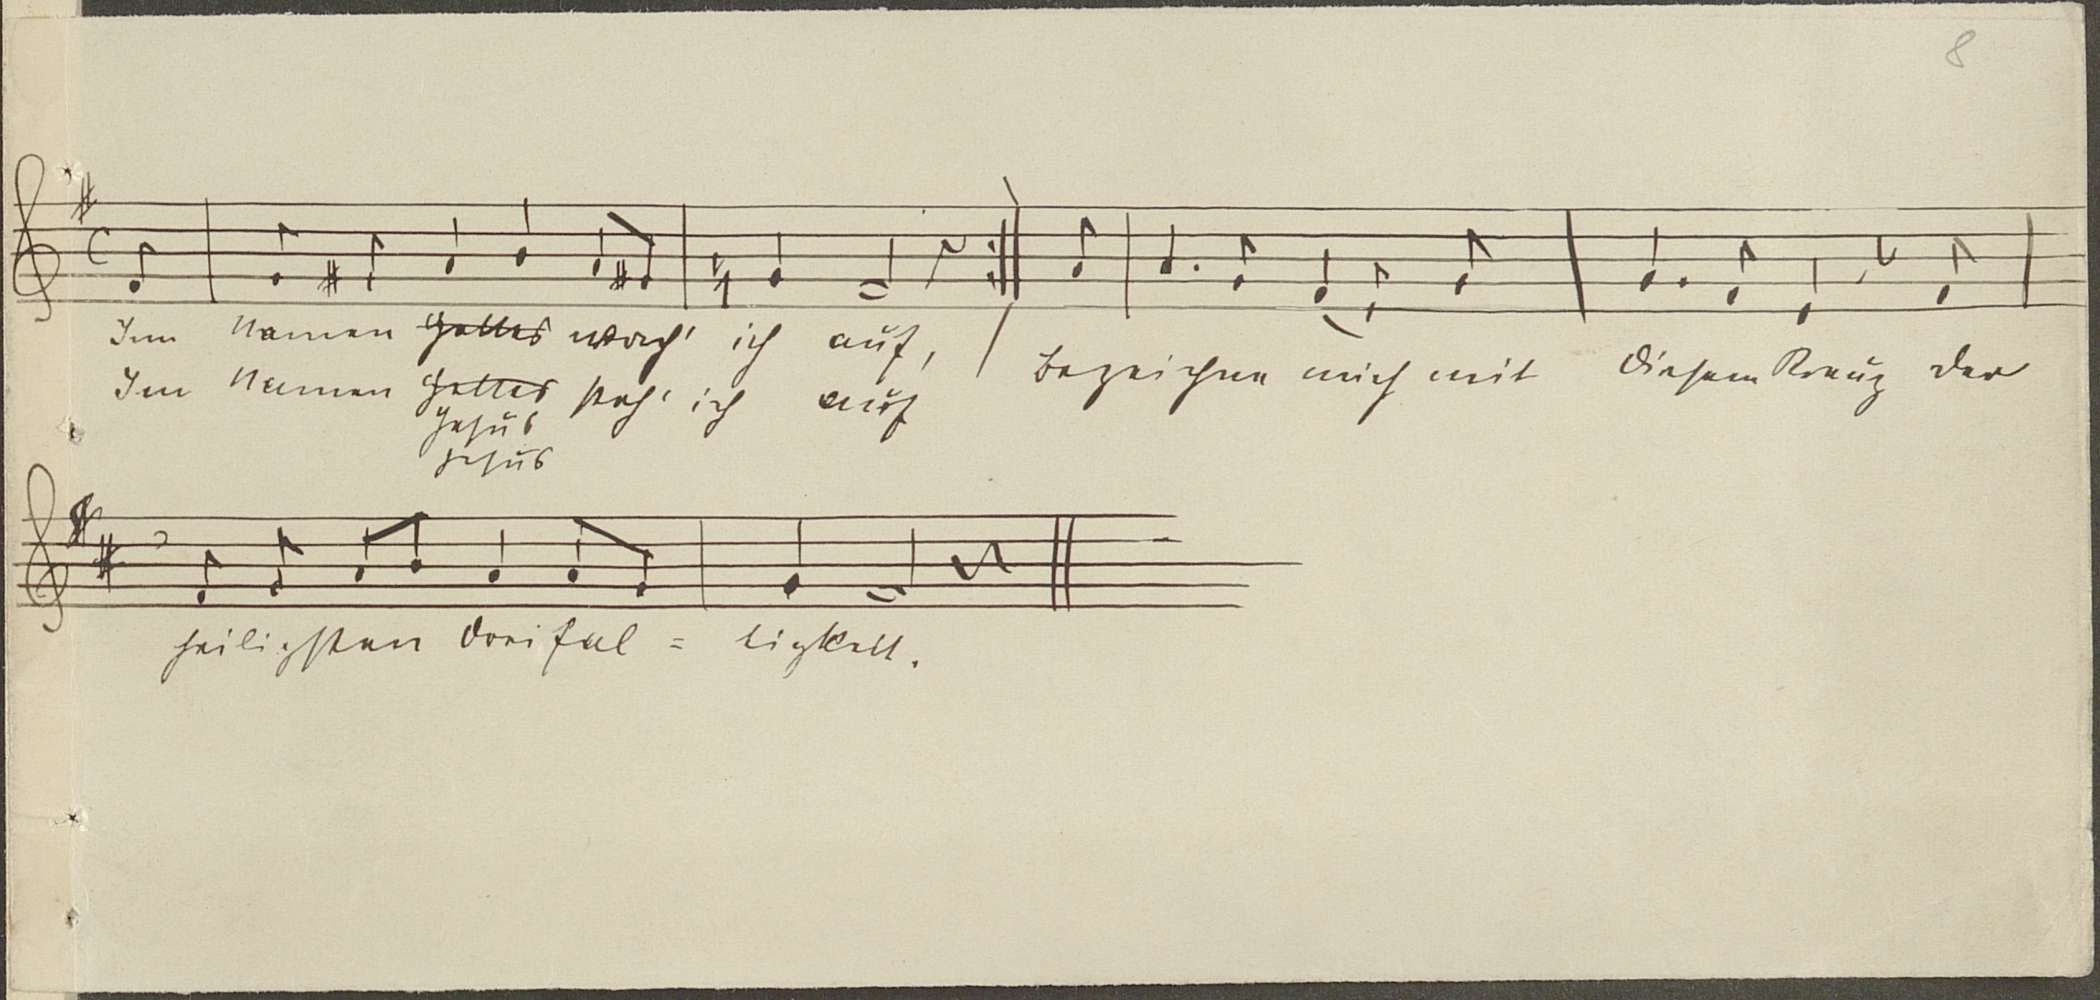 8
Im Namen Gottes wach' ich auf,
Im Namen Gottes steh' ich auf
Bezeichne mich mit diesem Kreuz der
Jesus
Jesus
heiligsten Dreifal = tigkeit.